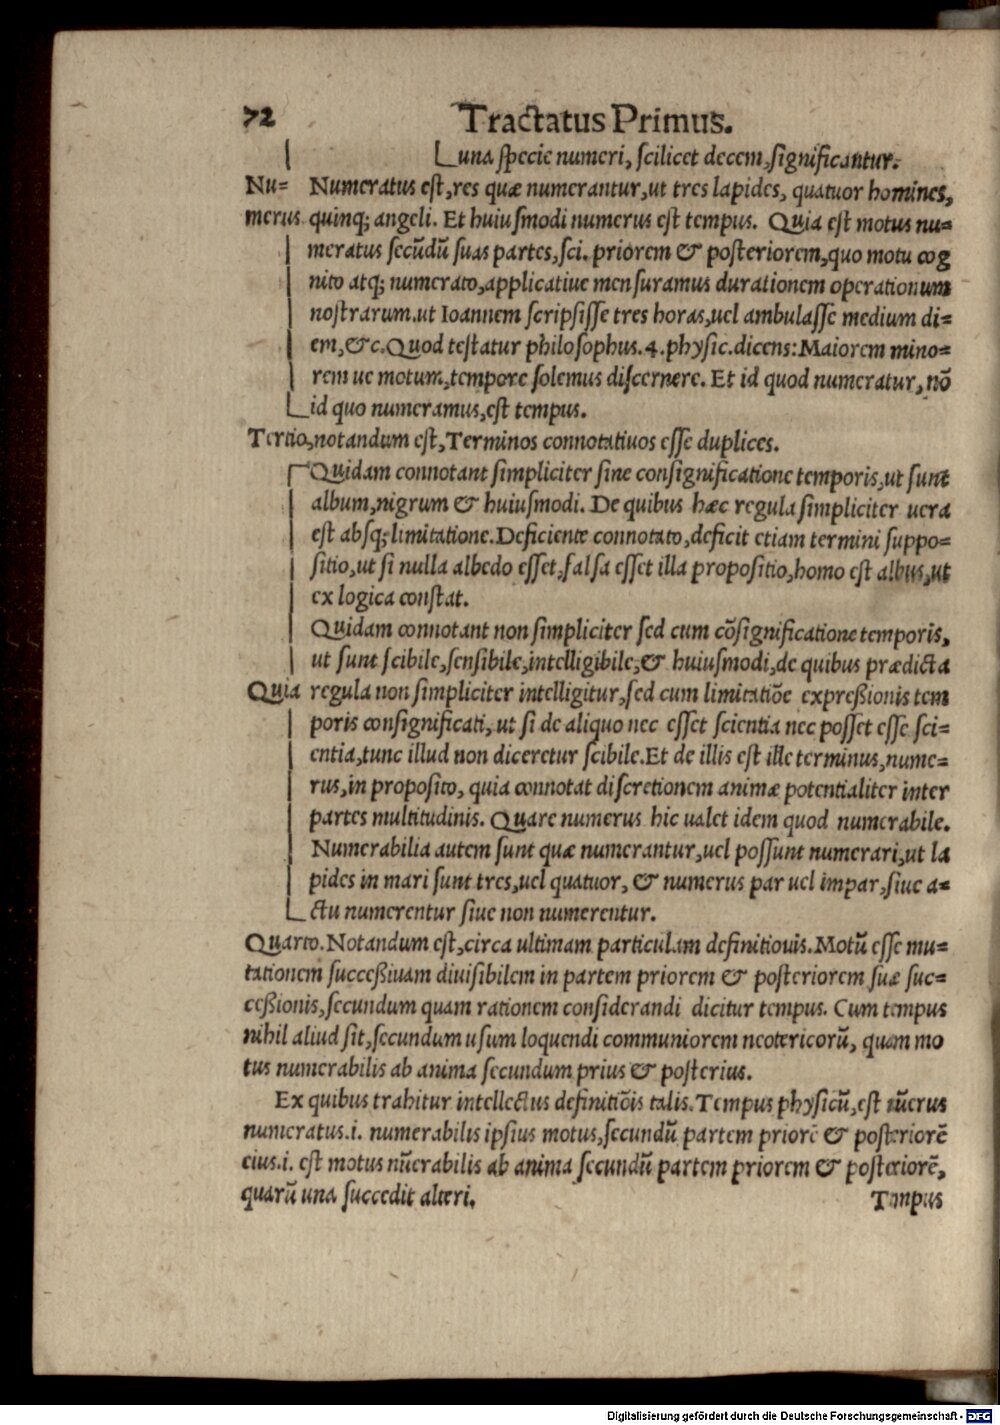 72 Tractatus Primus.
una specie numeri, scilicet decem, significantur.
Nu= Numeratus est, res quæ numerantur, ut tres lapides, quatuor homines,
merus quinq; angeli. Et huiusmodi numerus est tempus. Quia est motus nu=
meratus secūdū suas partes, sci. priorem & posteriorem, quo motu cog
nito atq; numerato, applicatiue mensuramus durationem operationum
nostrarum. ut Ioannem scripsisse tres horas, uel ambulasse medium di=
em, &c. Quod testatur philosophus. 4. physic. dicens: Maiorem mino=
rem ue motum, tempore solemus discernere. Et id quod numeratur, nō
id quo numeramus, est tempus.
Tertio, notandum est, Terminos connotatiuos esse duplices.
Quidam connotant simpliciter sine consignificatione temporis, ut sunt
album, nigrum & huiusmodi. De quibus hæc regula simpliciter uera
est absq; limitatione. Deficiente connotato, deficit etiam termini suppo=
sitio, ut si nulla albedo esset, falsa esset illa propositio, homo est albus, ut
ex logica constat.
Quidam connotant non simpliciter sed cum cōsignificatione temporis,
ut sunt scibile, sensibile, intelligibile, & huiusmodi, de quibus prædicta
Quia regula non simpliciter intelligitur, sed cum limitatiōe expreßionis tem
poris consignificati, ut si de aliquo nec esset scientia nec posset esse sci=
entia, tunc illud non diceretur scibile. Et de illis est ille terminus, nume=
rus, in proposito, quia connotat discretionem animæ potentialiter inter
partes multitudinis. Quare numerus hic ualet idem quod numerabile.
Numerabilia autem sunt quæ numerantur, uel possunt numerari, ut la
pides in mari sunt tres, uel quatuor, & numerus par uel impar, siue a=
ctu numerentur siue non numerentur.
Quarto. Notandum est, circa ultimam particulam definitiouis. Motū esse mu=
tationem succeßiuam diuisibilem in partem priorem & posteriorem suæ suc=
ceßionis, secundum quam rationem considerandi dicitur tempus. Cum tempus
nihil aliud sit, secundum usum loquendi communiorem neotericorū, quam mo
tus numerabilis ab anima secundum prius & posterius.
Ex quibus trahitur intellectus definitiōis talis. Tempus physicū, est nūerus
numeratus .i. numerabilis ipsius motus, secundū partem priorē & posteriorē
eius .i. est motus nūerabilis ab anima secundū partem priorem & posteriorē,
quarū una succedit alteri. Tempus
Digitalisierung gefördert durch die Deutsche Forschungsgemeinschaft - DFG